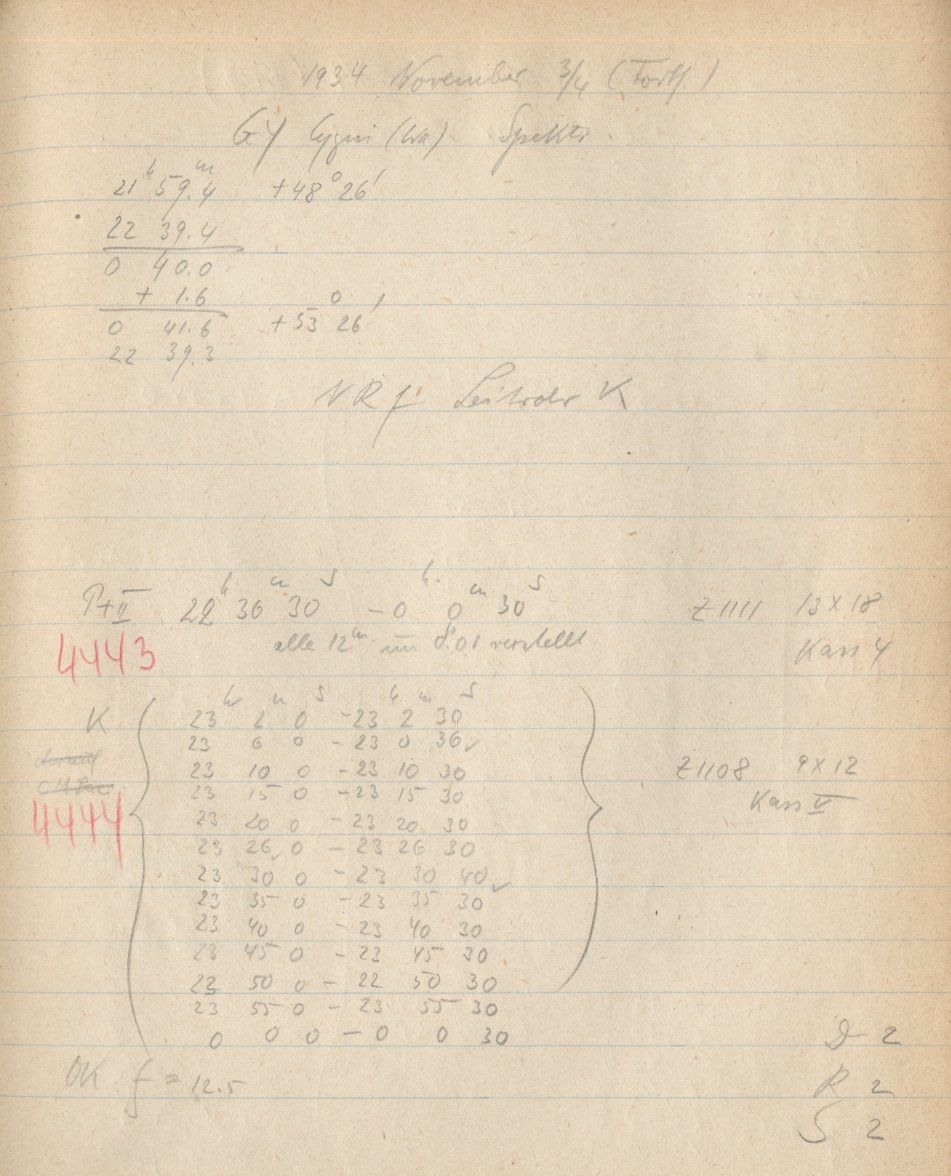 1934 November 3/4 (Forts.)
GY Cygni (Wa). Spektr.
21ʰ 59.ᵐ4 +48° 26'
22 39.4
0 40.0
+ 1.6
0 41.6 +53° 26'
22 39.3
NRf. K
P+II 22ʰ 36ᵐ 30ˢ - 0ʰ 0ᵐ 30ˢ Z1111 13 x 18
alle 12ᵐ um 0.01 verstellt Kass 4
4443
K 23ʰ 2ᵐ 0ˢ - 23ʰ 2ᵐ 30ˢ
23 6 0 - 23 6 36 ✓
23 10 0 - 23 10 30 Z1108 9 x 12
23 15 0 - 23 15 30 Kass V
4444 23 20 0 - 23 20 30
23 26 ✓ 0 - 23 26 30
23 30 0 - 23 30 40 ✓
23 35 0 - 23 35 30
23 40 0 - 23 40 30
23 45 0 - 23 45 30
23 50 0 - 22 50 30
23 55 0 - 23 55 30
0 0 0 - 0 0 30
D 2
OK f = 12.5 R 2
S 2